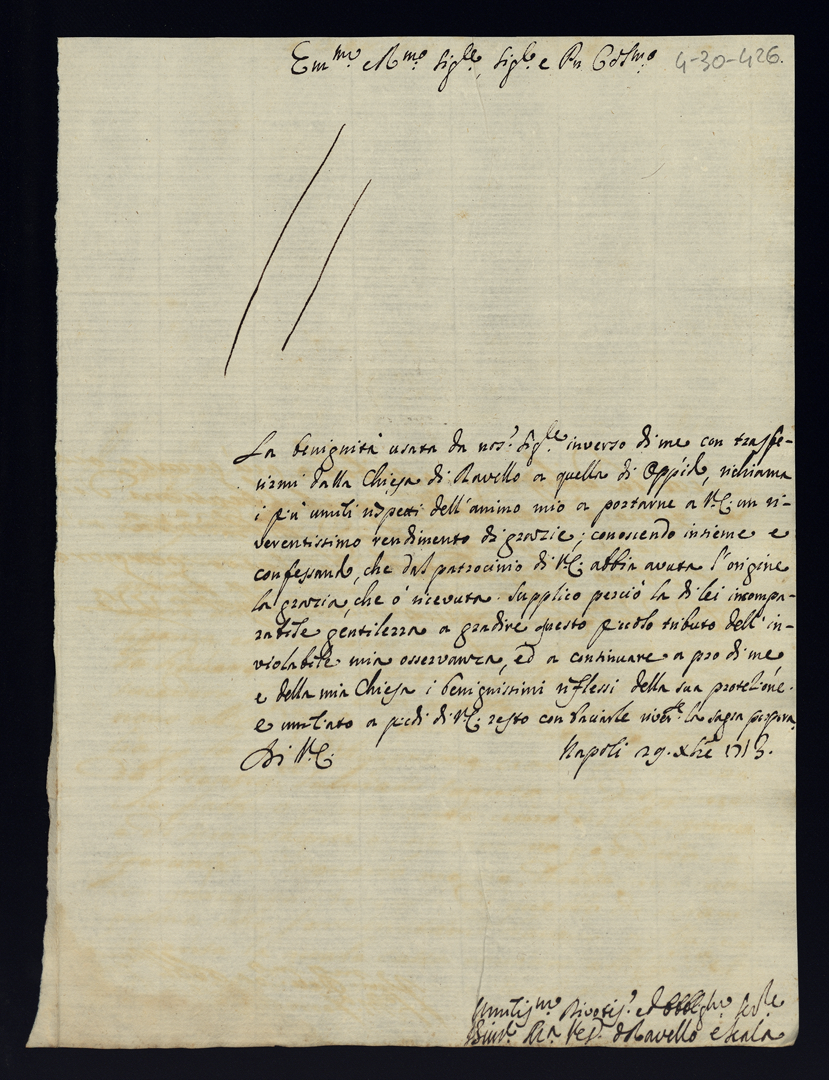 Em.mo e R.mo Sig.re, Sig.re e Pn. Col.mo 4-30-426.
La benignità usata da nos.o Sig.re inverso di me con trasfe-
rirmi dalla Chiesa di Ravello a quella di Oppido, richiama
i più umili rispetti dell'animo mio a portarne a V.E. un ri-
verentissimo rendimento di grazie; conoscendo insieme e
confessando, che dal patrocinio di V.E. abbia avuta l'origine
la grazia, che ò ricevuta. Supplico perciò la di lei incompa-
rabile gentilezza a gradire questo piccolo tributo dell'in-
violabile mia osservanza, ed a continuare a pro di me,
e della mia Chiesa i benignissimi riflessi della sua protezione.
e umiliato a piedi di V.E. resto con baciarle river.te la sagra porpora
Di V.E. Napoli 29. Xbre 1713.
Umiliss.mo Divotis.o ed Obblig.mo Ser.re
Vesc.o di Ravello e Scala